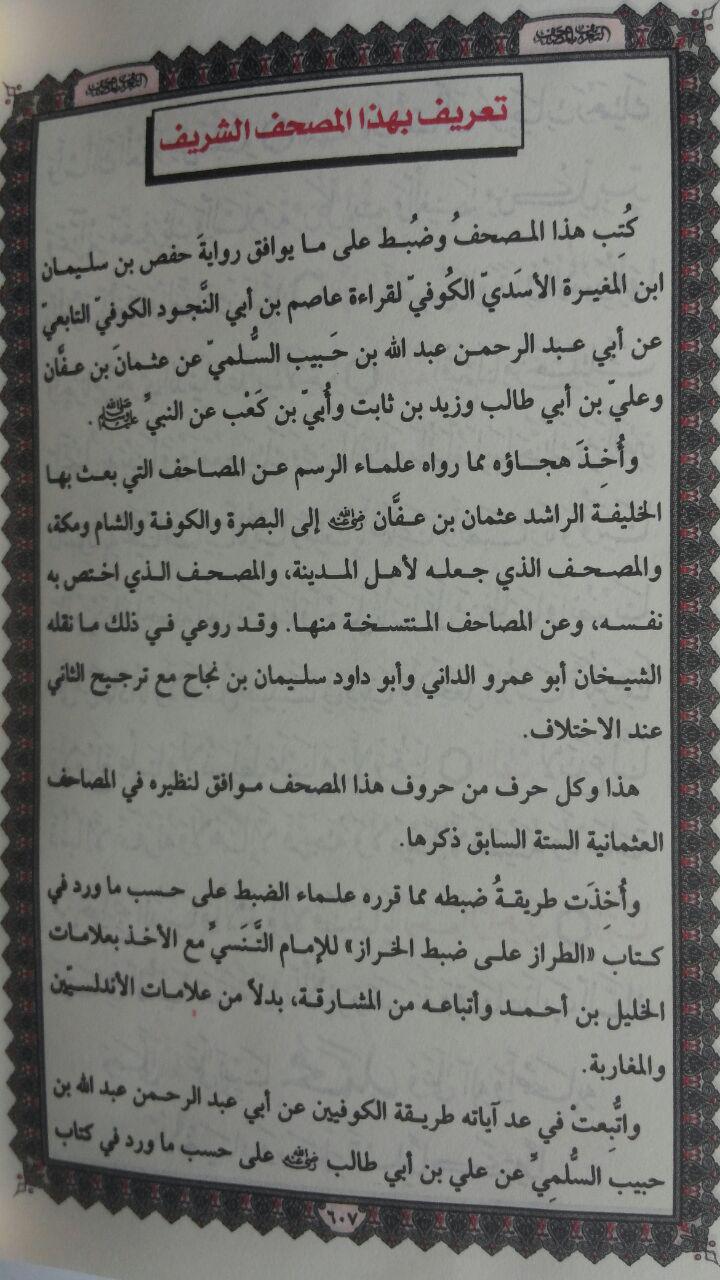 التعريف بالمصحف
التعريف بالمصحف
تعريف بهذا المصحف الشريف
كُتِب هذا المصحفُ وضُبط على ما يوافق روايةَ حفص بن سليمان
ابن المغيرة الأسَديّ الكُوفيّ لقراءة عاصم بن أبي النَّجود الكوفيّ التابعيّ
عن أبي عبد الرحمن عبد الله بن حَبيب السُّلميّ عن عثمانَ بن عفَّان
وعليّ بن أبي طالب وزيد بن ثابت وأُبيّ بن كَعْب عن النبيِّ ﷺ .
وأُخِذَ هجاؤه مما رواه علماء الرسم عن المصاحف التي بعث بها
الخليفة الراشد عثمان بن عفَّان رضي الله عنه إلى البصرة والكوفة والشام ومكة،
والمصحف الذي جعله لأهل المدينة، والمصحف الذي اختص به
نفسه، وعن المصاحف المنتسخة منها. وقد روعي في ذلك ما نقله
الشيخان أبو عمرو الداني وأبو داود سليمان بن نجاح مع ترجيح الثاني
عند الاختلاف.
هذا وكل حرف من حروف هذا المصحف موافق لنظيره في المصاحف
العثمانية الستة السابق ذكرها.
وأُخِذَت طريقةُ ضبطه مما قرره علماء الضبط على حسب ما ورد في
كتاب «الطراز على ضبط الخراز» للإمام التَّنَسيِّ مع الأخذ بعلامات
الخليل بن أحمد وأتباعه من المشارقة، بدلاً من علامات الأندلسيّين
والمغاربة.
واتُّبِعتْ في عد آياته طريقة الكوفيين عن أبي عبد الرحمن عبد الله بن
حبيب السُّلمِيِّ عن علي بن أبي طالب رضي الله عنه على حسب ما ورد في كتاب
٦٠٧